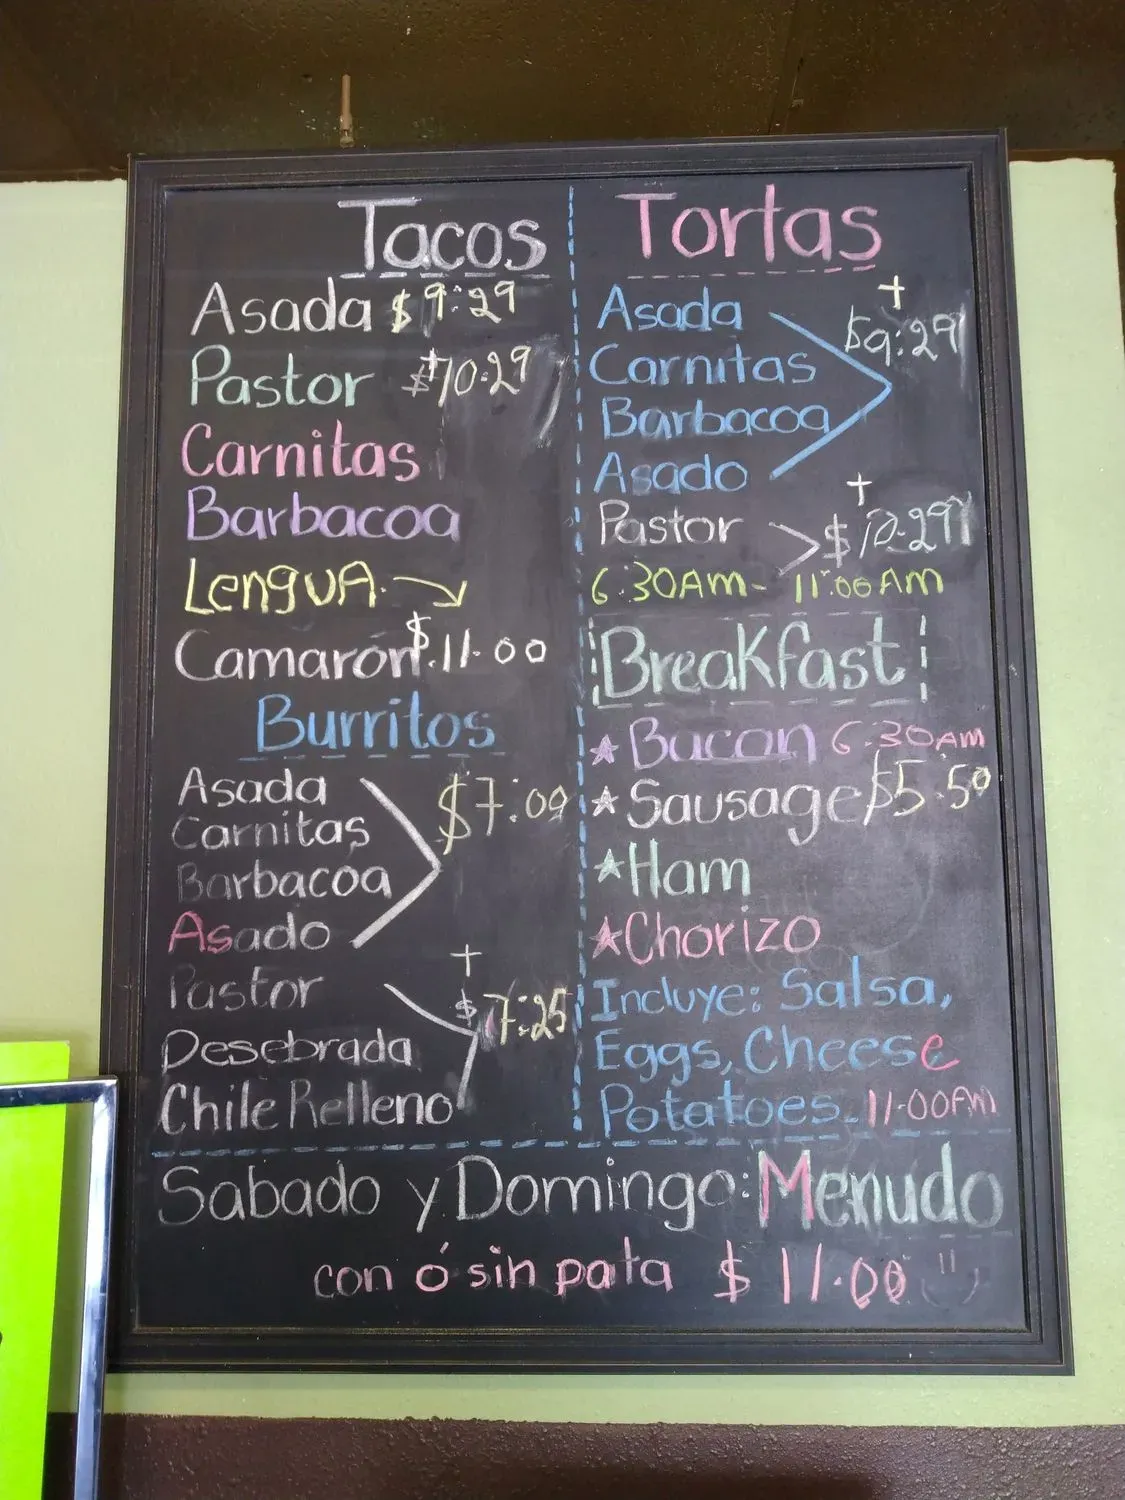 Tacos
Asada $9:29
Pastor $+10.29
Carnitas
Barbacoa
LengUA.
Camarón $.11.00
Burritos
Asada
Carnitas
Barbacoa
Asado
$7:00
Pastor
Desebrada
Chile Relleno
+
$7:25
Tortas
Asada
Carnitas
Barbacoa
Asado
+
$9:29
Pastor
+
$10.29
6:30AM- 11:00AM
Breakfast
★ Bacon 6:30AM
★ Sausage $5.50
★ Ham
★ Chorizo
Incluye: Salsa,
Eggs, Cheese
Potatoes. 11:00AM
Sabado y Domingo: Menudo
con ó sin pata $11.00